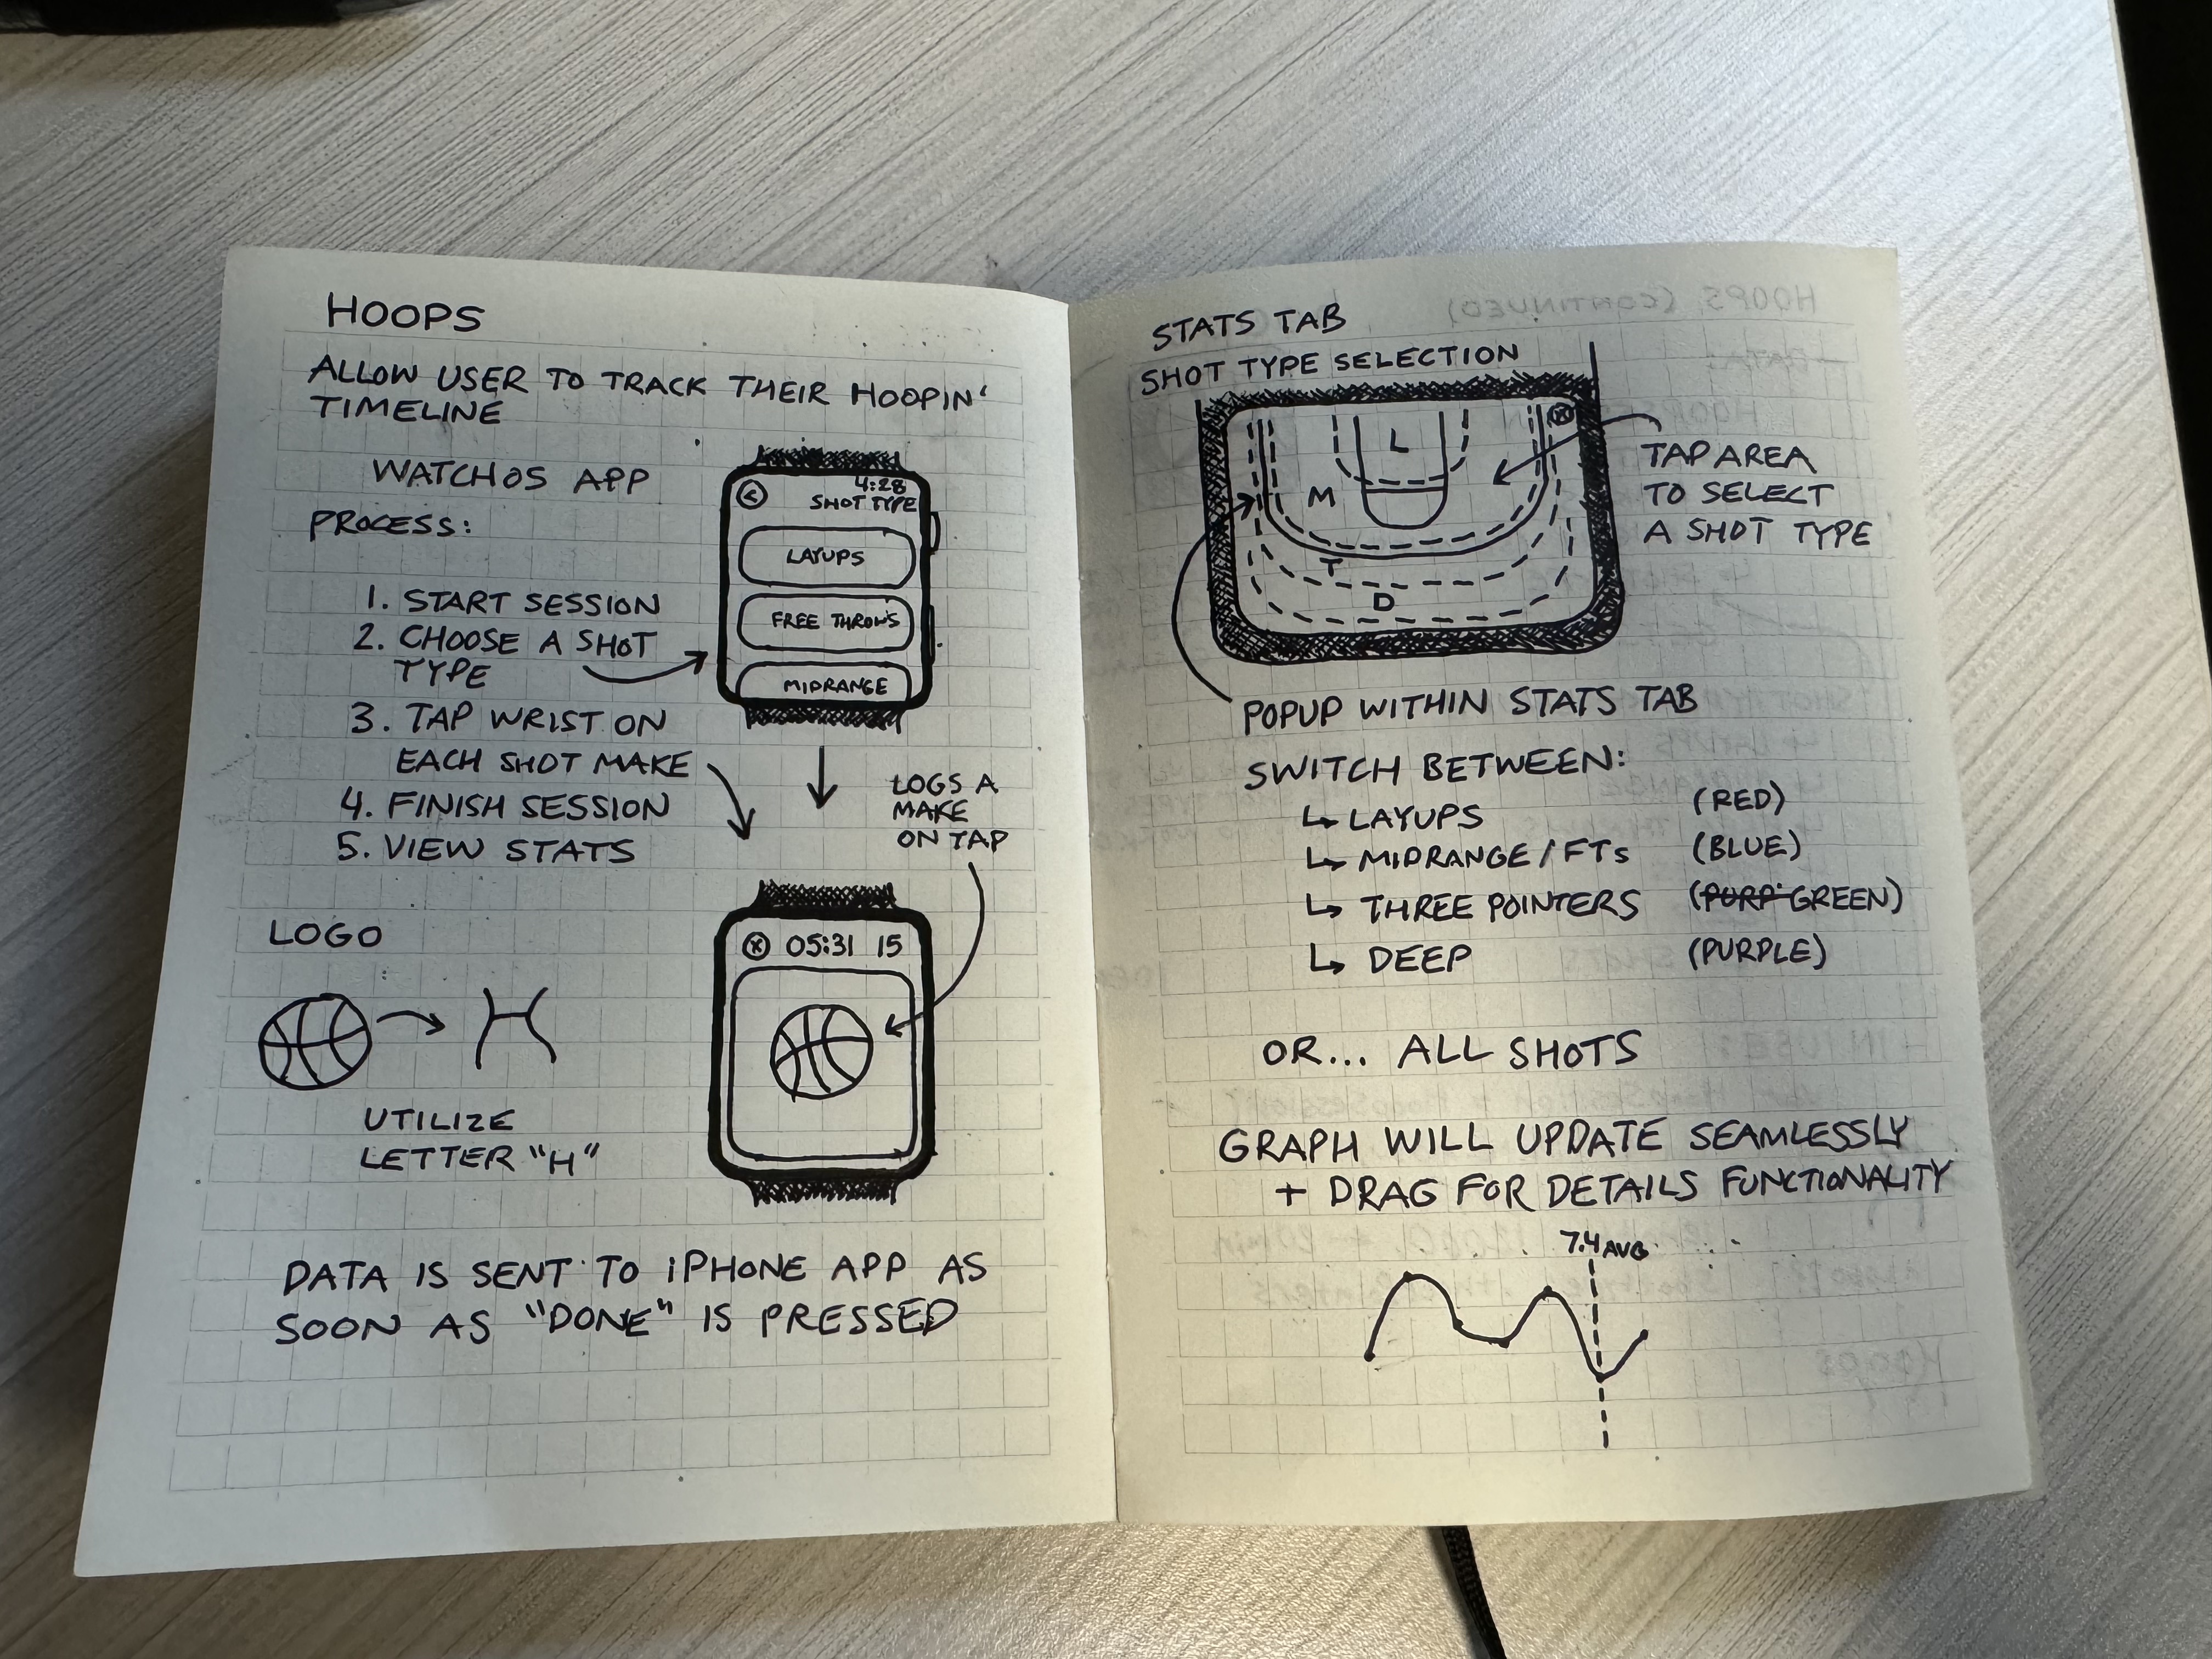 HOOPS
ALLOW USER TO TRACK THEIR HOOPIN'
TIMELINE
WATCHOS APP
PROCESS:
1. START SESSION
2. CHOOSE A SHOT
TYPE
3. TAP WRIST ON
EACH SHOT MAKE
4. FINISH SESSION
5. VIEW STATS
4:28
SHOT TYPE
LAYUPS
FREE THROWS
MIDRANGE
LOGS A
MAKE
ON TAP
05:31 15
LOGO
UTILIZE
LETTER "H"
DATA IS SENT TO iPHONE APP AS
SOON AS "DONE" IS PRESSED
STATS TAB
SHOT TYPE SELECTION
L
M
T
D
TAP AREA
TO SELECT
A SHOT TYPE
POPUP WITHIN STATS TAB
SWITCH BETWEEN:
LAYUPS (RED)
MIDRANGE/FTs (BLUE)
THREE POINTERS (PURP GREEN)
DEEP (PURPLE)
OR... ALL SHOTS
GRAPH WILL UPDATE SEAMLESSLY
+ DRAG FOR DETAILS FUNCTIONALITY
7.4 AVG
HOOPS (CONTINUED)